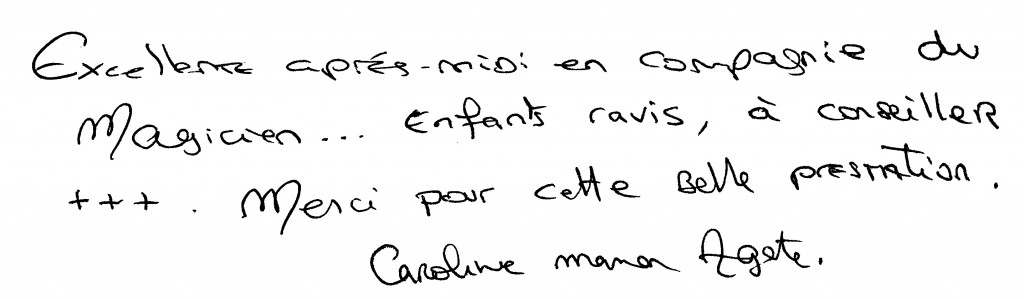 Excellente après-midi en compagnie du
Magicien... Enfants ravis, à conseiller
+++. Merci pour cette belle prestation.
Caroline maman Agate.